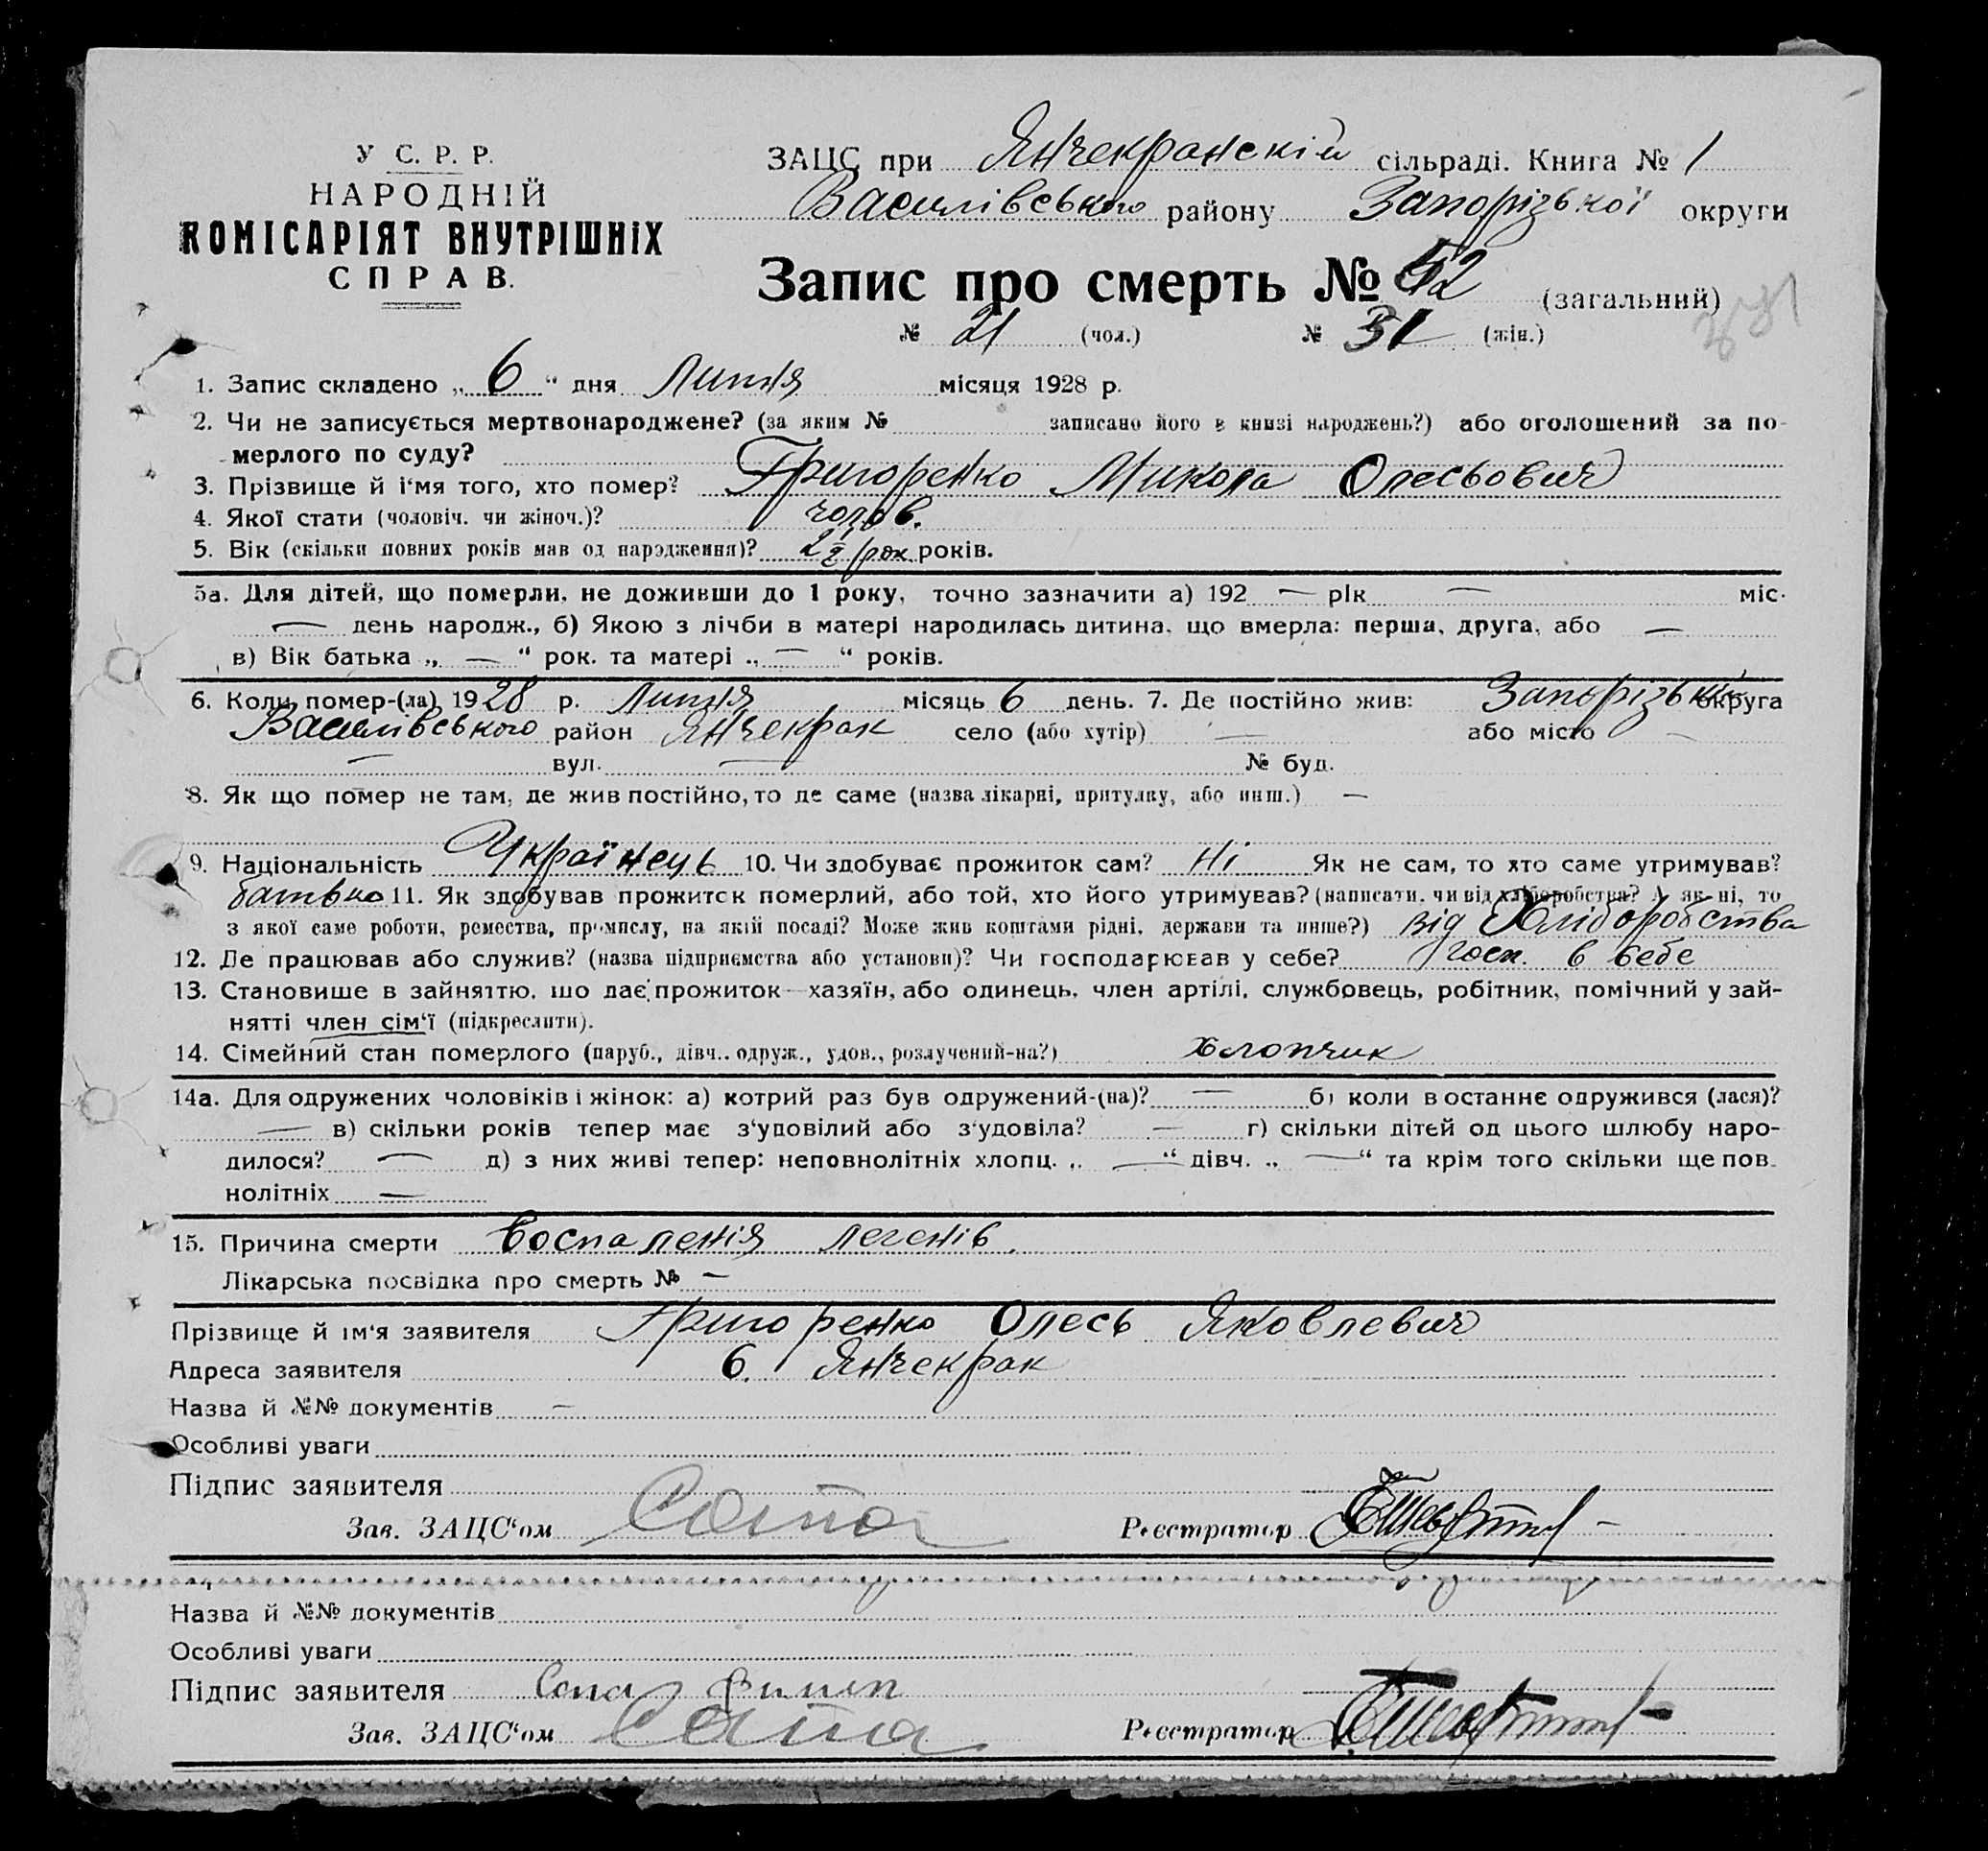 У С. Р. Р.
НАРОДНІЙ
КОМІСАРІЯТ ВНУТРІШНІХ
СПРАВ.
ЗАЦС при Янчекранскій сільраді. Книга № 1
Василівського району Запорізької округи
Запис про смерть № 52 (загальний)
№ 21 (чол.) № 31 (жін.)
1. Запис складено „ 6 “ дня Липня місяця 1928 р.
2. Чи не записується мертвонароджене? (за яким № записано його в книзі народжень?) або оголошений за по-
мерлого по суду?
3. Прізвище й і‘мя того, хто помер? Григоренко Микола Олесьович
4. Якої стати (чоловіч. чи жіноч.)? чолов.
5. Вік (скільки повних років мав од народження)? 2 1/2 рок років.
5а. Для дітей, що померли, не доживши до 1 року, точно зазначити а) 192 — рік — міс.
— день народж., б) Якою з лічби в матері народилась дитина, що вмерла: перша, друга, або —
в) Вік батька „ — “ рок. та матері „ — “ років.
6. Коли помер-(ла) 1928 р. Липня місяць 6 день. 7. Де постійно жив: Запорізьк округа
Василівського район Янчекрак село (або хутір) — або місто —
— вул. — № буд.
8. Як що помер не там, де жив постійно, то де саме (назва лікарні, притулку, або инш.) —
9. Національність Українець 10. Чи здобуває прожиток сам? Ні Як не сам, то хто саме утримував?
батько 11. Як здобував прожиток померлий, або той, хто його утримував? (написати, чи від хліборобства? А як ні, то
з якої саме роботи, ремества, промислу, на якій посаді? Може жив коштами рідні, держави та инше?) від Хліборобства
12. Де працював або служив? (назва підприємства або установи)? Чи господарював у себе? госп. в себе
13. Становише в зайняттю, шо дає прожиток—хазяїн, або одинець, член артілі, службовець, робітник, помічний у зай-
нятті член сім‘ї (підкреслити).
14. Сімейний стан померлого (паруб., дівч., одруж., удов., розлучений-на?) хлопчик
14а. Для одружених чоловіків і жінок: а) котрий раз був одружений-(на)? — б) коли в останнє одружився (лася)?
— в) скільки років тепер має з‘удовілий або з‘удовіла? — г) скільки дітей од цього шлюбу наро-
дилося? — д) з них живі тепер: неповнолітніх хлопц. „ —“ дівч. „ —“ та крім того скільки ще пов-
нолітніх —
15. Причина смерти Воспаленія легенів.
Лікарська посвідка про смерть № —
Прізвище й ім‘я заявителя Григоренко Олесь Яковлевич
Адреса заявителя с. Янчекрак
Назва й №№ документів —
Особливі уваги
Підпис заявителя
Зав. ЗАЦС‘ом Реєстратор
Назва й №№ документів
Особливі уваги
Підпис заявителя
Зав. ЗАЦС‘ом Реєстратор